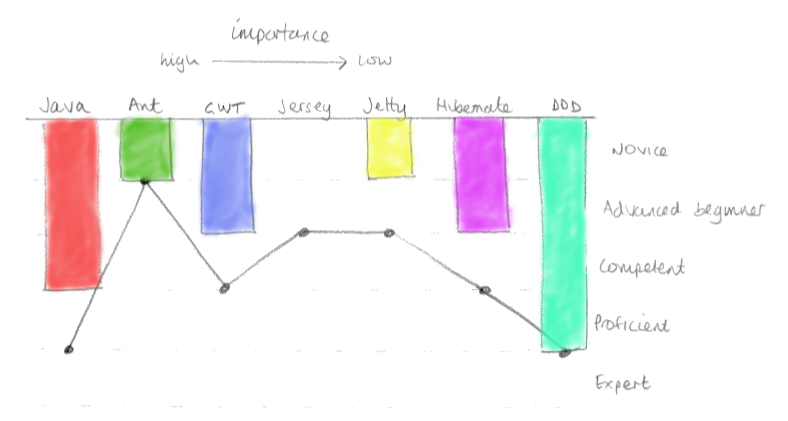 importance
high → low
Java Ant GWT Jersey Jetty Hibernate DDD
Novice
Advanced beginner
Competent
Proficient
Expert